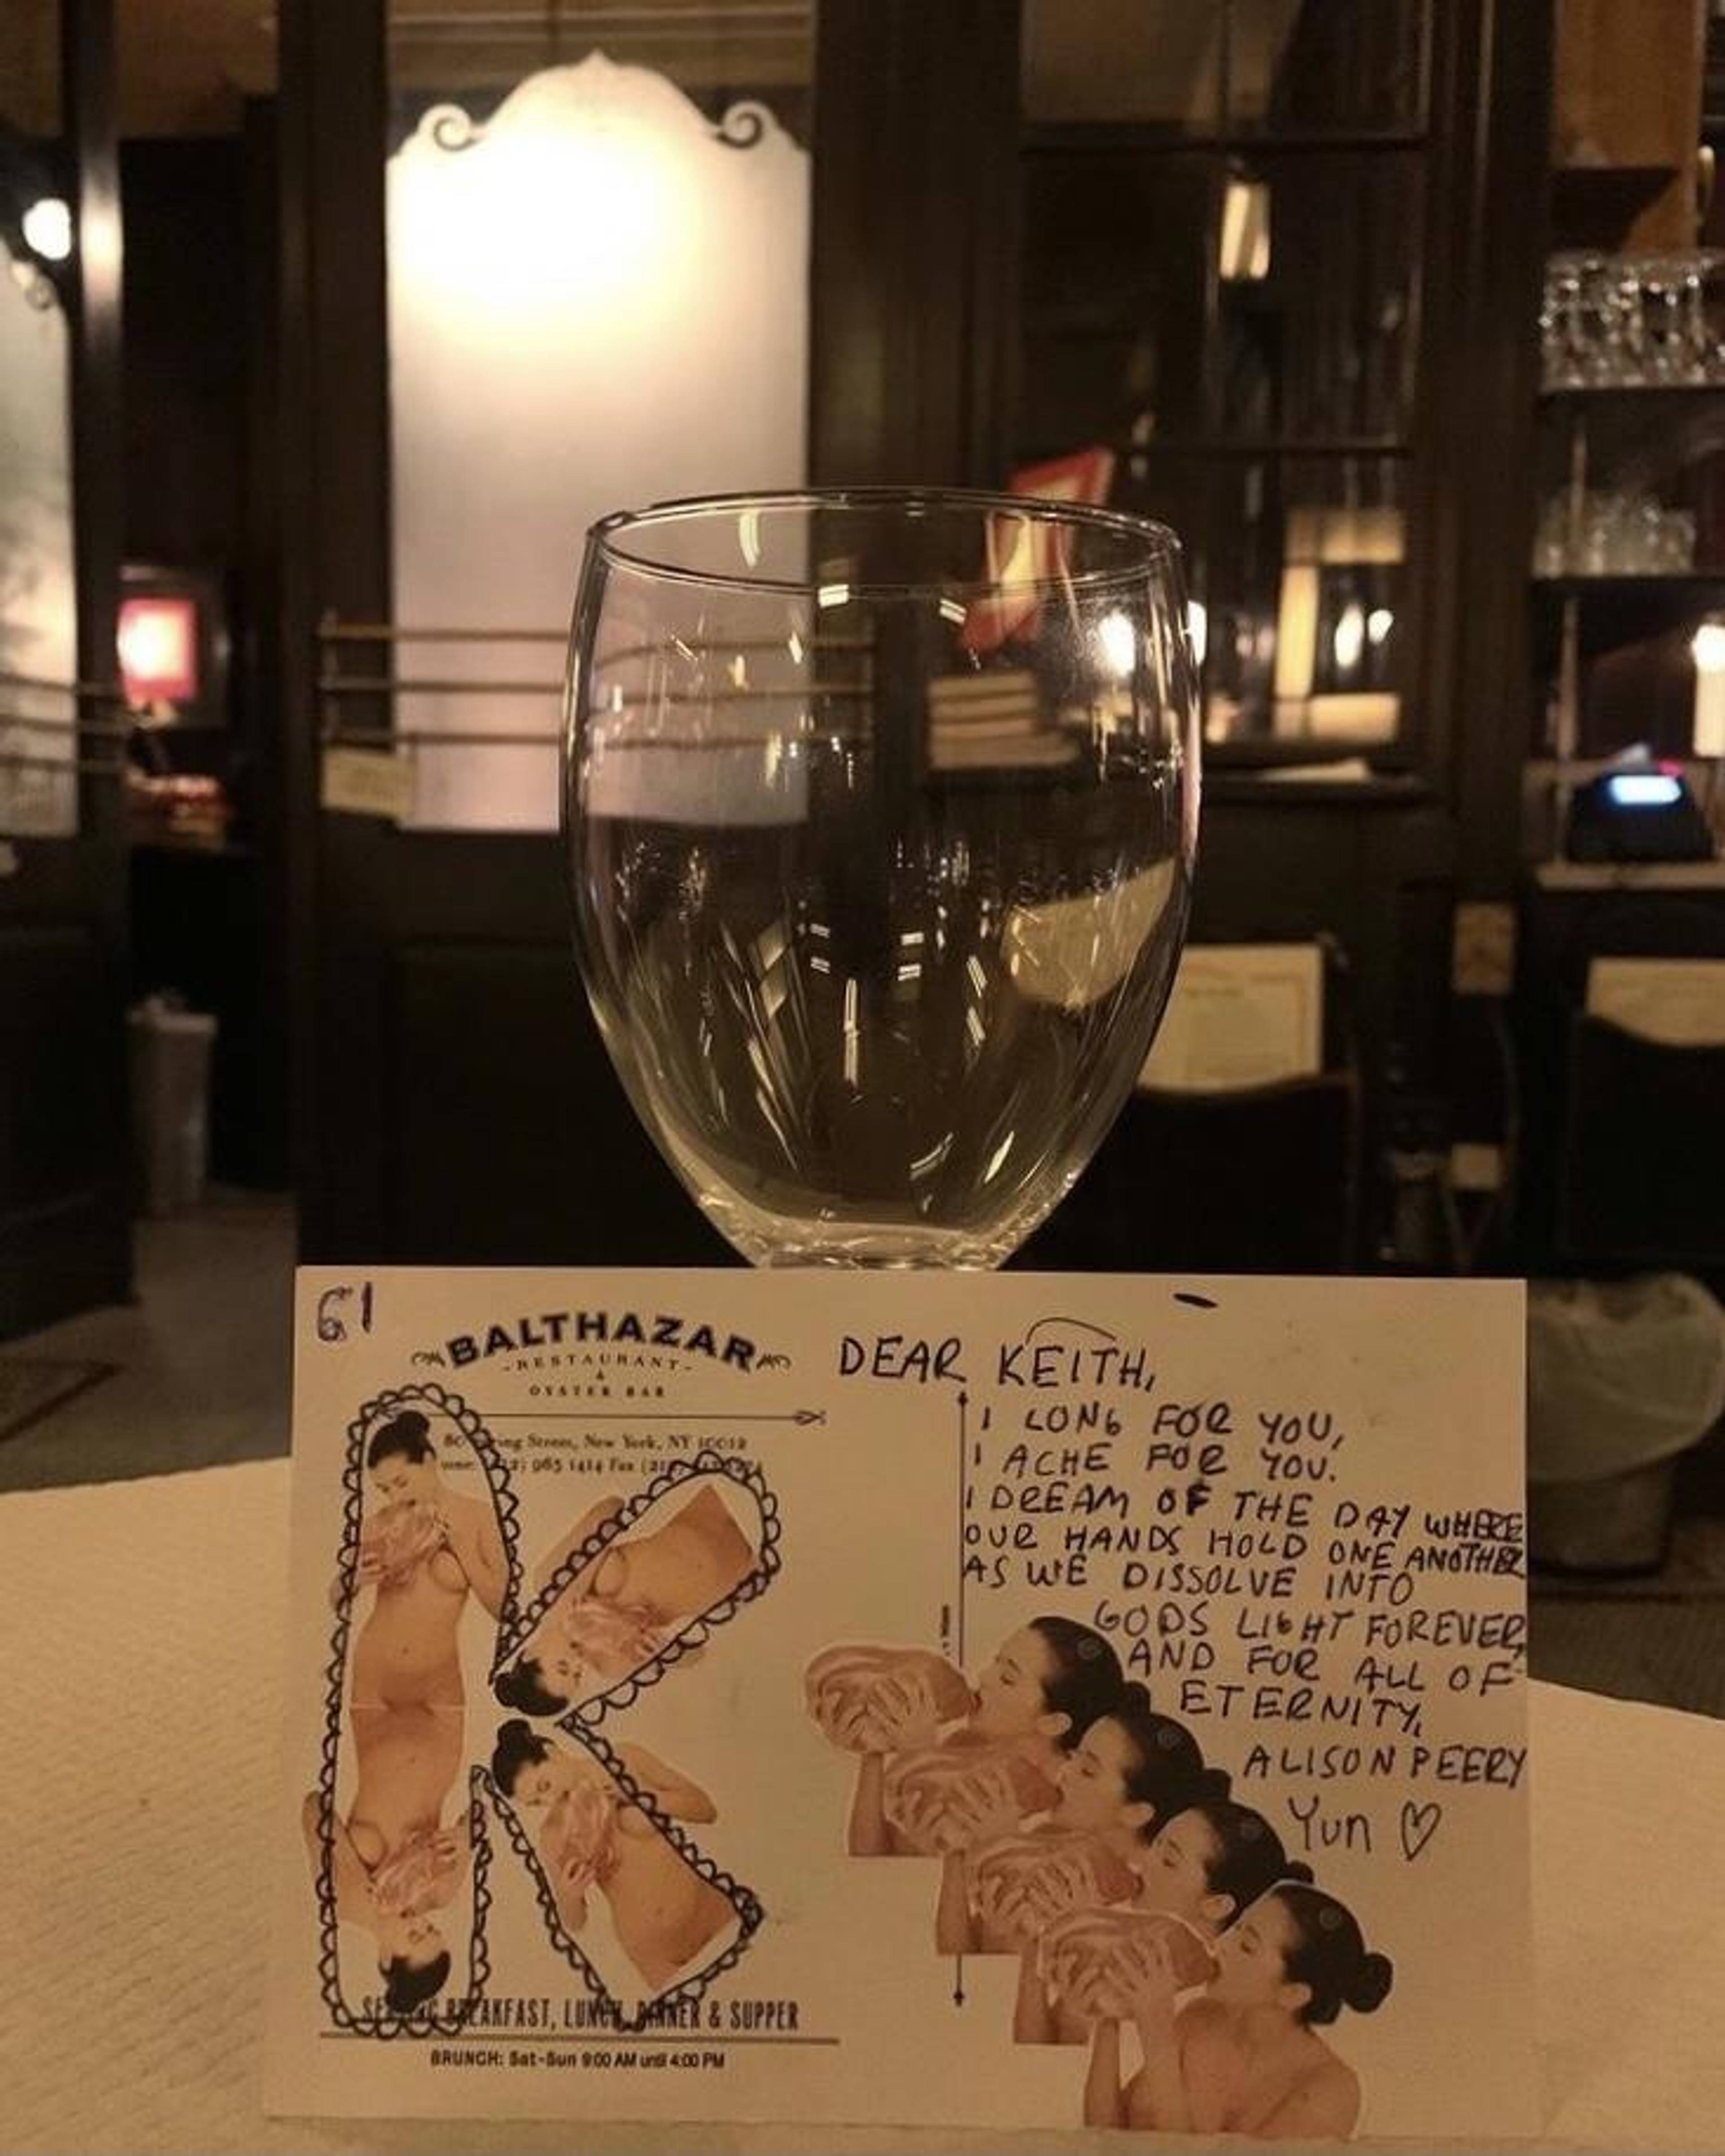 61
BALTHAZAR
-RESTAURANT-
&
OYSTER BAR
80 ng Street, New York, NY 10012
2) 965 1414 Fax (212)
SE NG BREAKFAST, LUNCH, DINNER & SUPPER
BRUNCH: Sat-Sun 9:00 AM until 4:00 PM
DEAR KEITH,
I LONG FOR YOU,
I ACHE FOR YOU.
I DREAM OF THE DAY WHERE
OUR HANDS HOLD ONE ANOTHER
AS WE DISSOLVE INTO
GODS LIGHT FOREVER,
AND FOR ALL OF
ETERNITY,
ALISON PEERY
Yun ♡